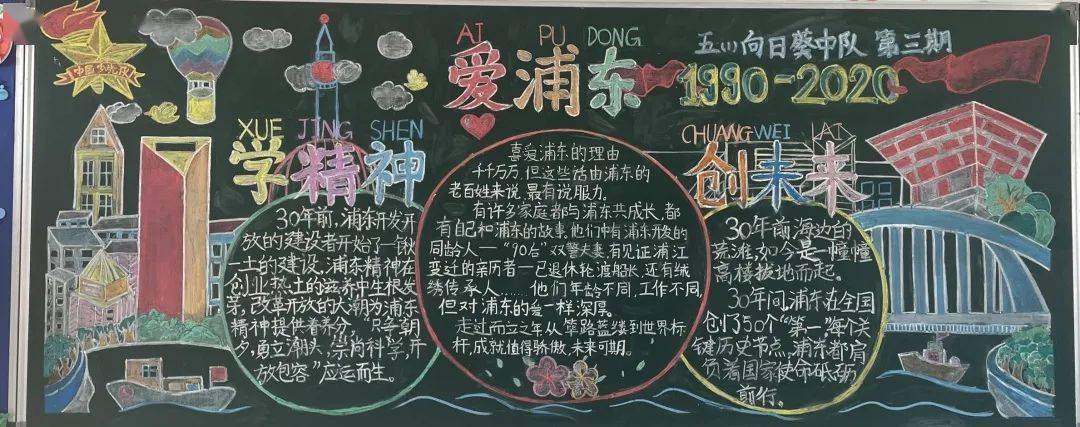 AI PU DONG
爱浦东
五(1)向日葵中队 第三期
1990-2020
XUE JING SHEN
学精神
30年前,浦东开发开
放的建设者开始了一锹
一土的建设,浦东精神在
创业热土的滋养中生根发
芽,改革开放的大潮为浦东
精神提供着养分,“只争朝
夕,勇立潮头,崇尚科学,开
放包容”应运而生。
喜爱浦东的理由
千千万万,但这些话由浦东的
老百姓来说,最有说服力。
有许多家庭都与浦东共成长,都
有自己和浦东的故事,他们中有浦东开发的
同龄人—“90后”双警夫妻,有见证浦江
变迁的亲历者—已退休轮渡船长,还有绒
绣传承人……他们年龄不同,工作不同,
但对浦东的爱一样深厚。
走过而立之年从筚路蓝缕到世界标
杆,成就值得骄傲,未来可期。
CHUANG WEI LAI
创未来
30年前海边的
荒滩,如今是一幢幢
高楼拔地而起。
30年间,浦东在全国
创了50个“第一”每个关
键历史节点,浦东都肩
负着国家使命砥砺
前行。